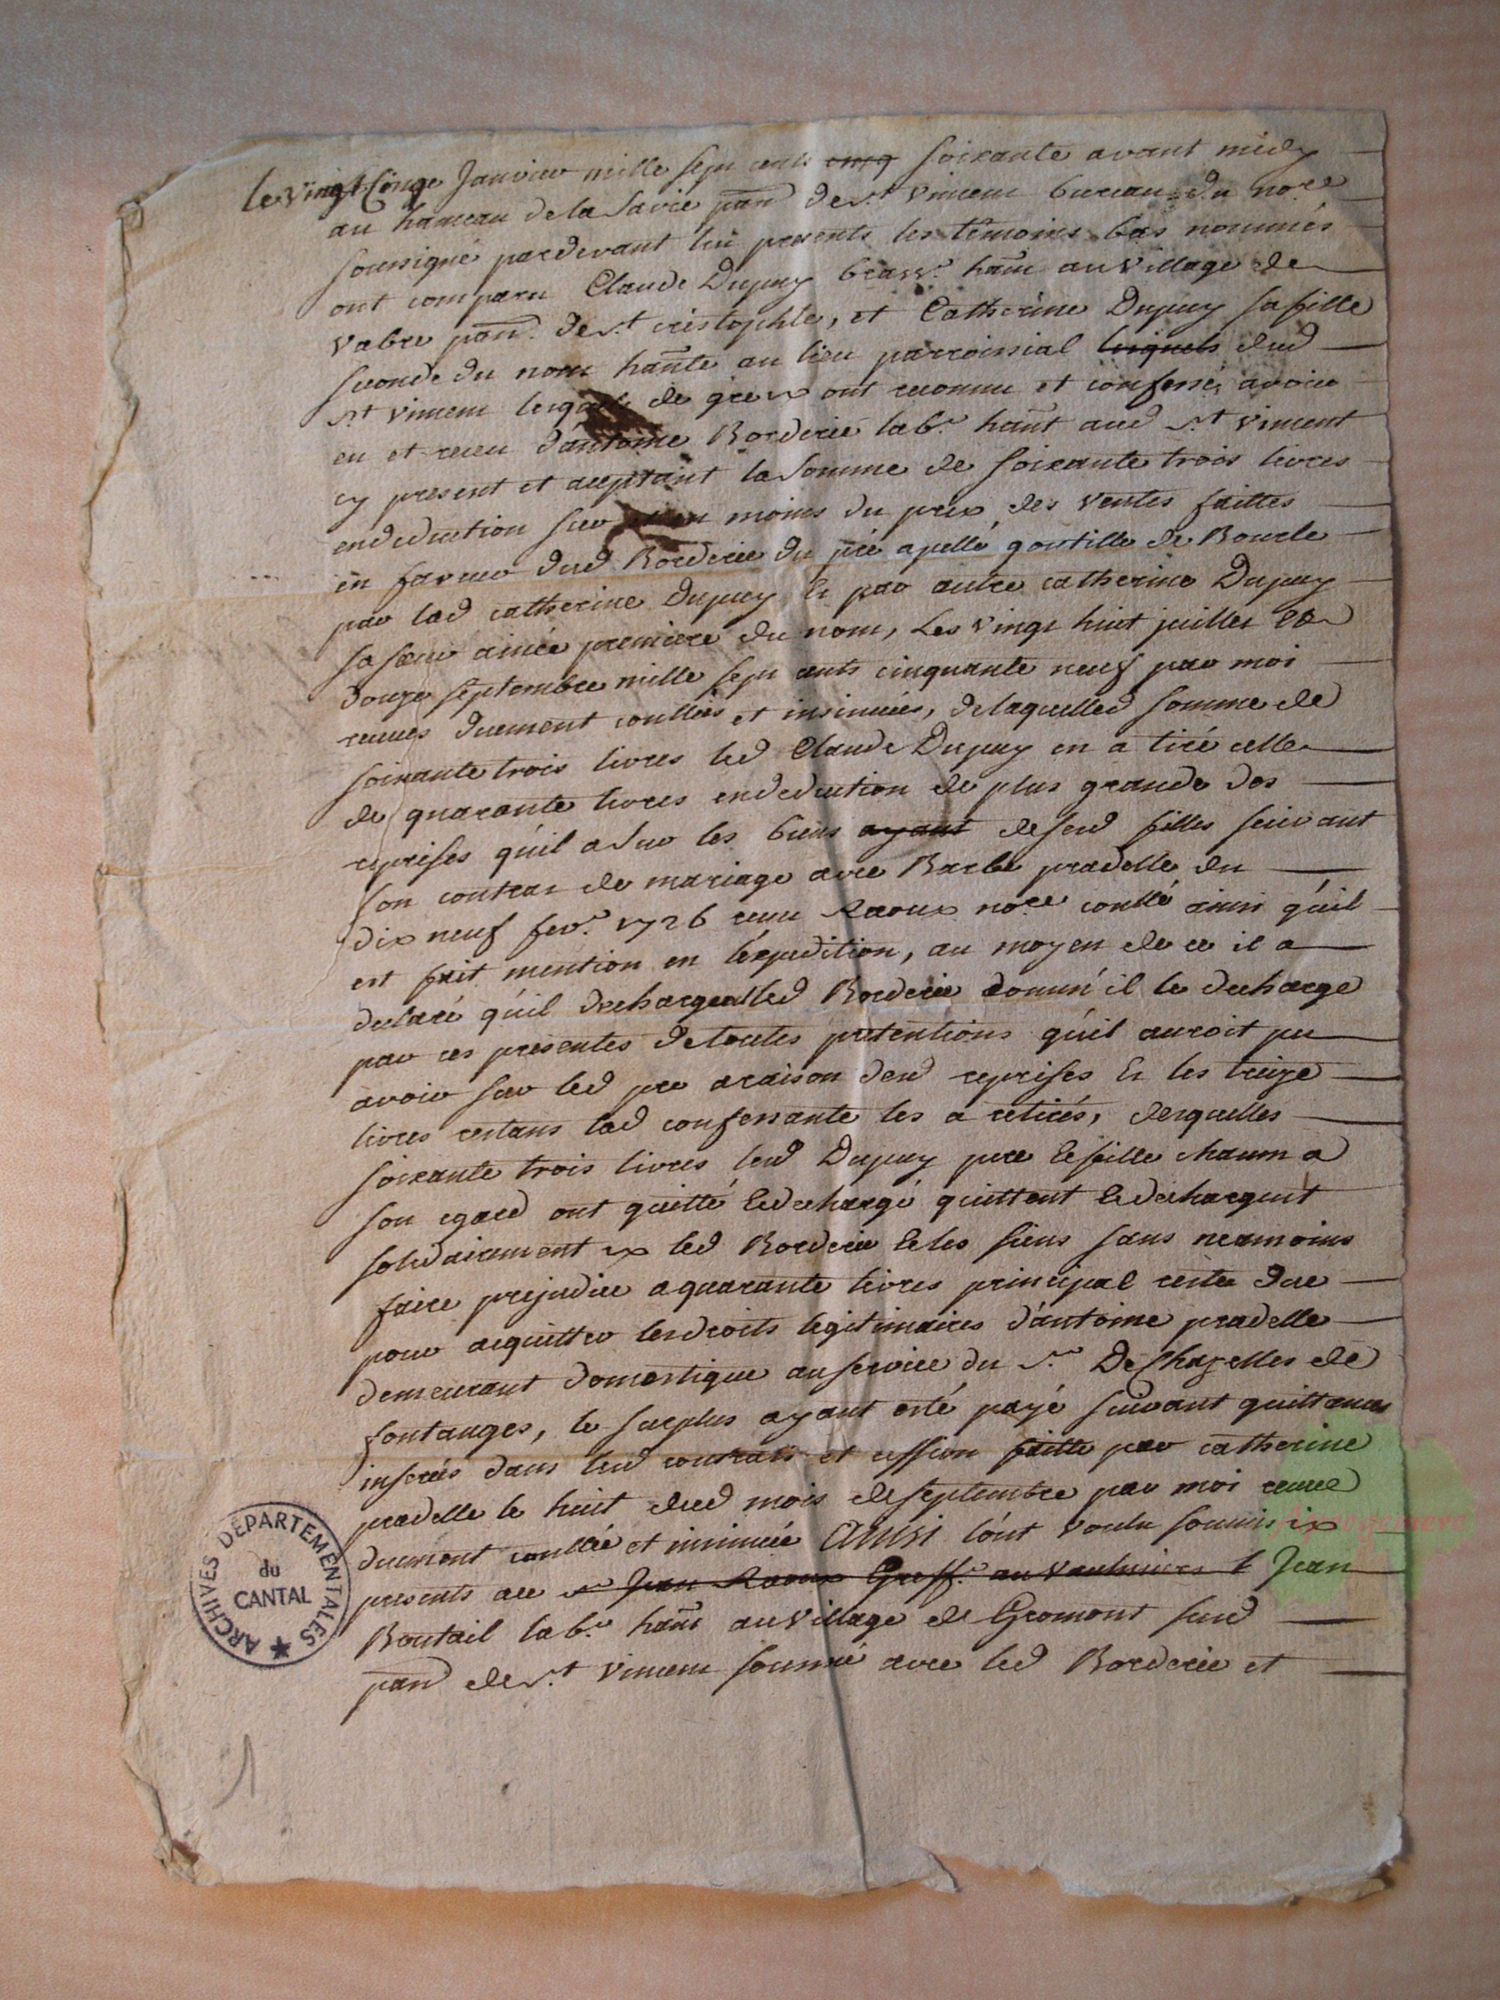 le vingt cinqe Janvier mille sept cents cinq soixante avant midy
au hameau de la Savie pan de st vincent bureau du nore
soussigné pardevant lui presents les témoins bas nommés
ont comparu Claude Dupuy brassr hant au village de
vabre pan de st cristophle, et Catherine Dupuy sa fille
seconde du nom hante au lieu parroissial dud
st vincent lesquels de gré ont reconnu et confessé avoir
eu et receu d'antoine Borderie labr hant aud st vincent
cy present et aceptant la somme de soixante trois livres
endeduction sur moins du prix des ventes faittes
en faveur dud Borderie du pré apellé goutille de Boucle
par lad catherine Dupuy & par autre catherine Dupuy
sa sœur ainée premiere du nom, Les vingt huit juillet &
douze septembre mille sept cents cinquante neuf par moi
receues duement conllées et insinuées, de laquelled somme de
soixante trois livres led Claude Dupuy en a tiré celle
de quarante livres endeduction de plus grande des
reprises qu'il a sur les biens ayant desd filles suivant
son contrat de mariage avec Barbe pradelle du
dix neuf fevr 1726 receu Raoux nore conllé ainsi qu'il
est fait mention en l'expedition, au moyen de ce il a
declaré qu'il decharge led Borderie comm'il le decharge
par ces presentes de toutes pretentions qu'il auroit pu
avoir sur led pre a raison desd reprises & les treize
livres restans lad confessante les a retirés, desquelles
soixante trois livres lesd Dupuy pere & fille chacun a
son egard ont quitté & dechargé quittent & dechargent
solidairement led Borderie & les siens sans neanmoins
faire prejudice a quarante livres principal restee due
pour acquitter les droits legitimaires d'antoine pradelle
demeurant domestique au service du sr De Chazelles de
fontanges, le surplus ayant esté payé suivant quittances
inserées dans lesd contrats et cession faitte par catherine
pradelle le huit dud mois de septembre par moi receue
duement conllée et insinuée Ainsi l'ont voulu
presents aec sr Jean Raoux Greffr au vaulmiers & Jean
Boutail labr hant au village de Gromont susd
pan de st vincent soussigné avec led Borderie et
ARCHIVES DÉPARTEMENTALES
du
CANTAL
1